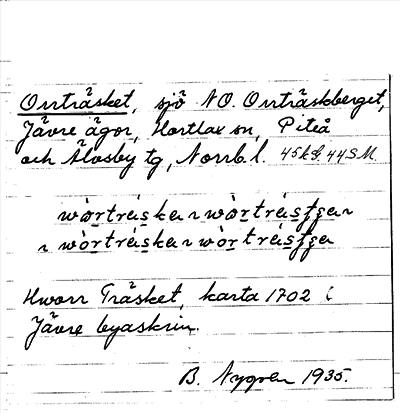 Orrträsket, sjö NO. Orrträskberget,
Jävre ägor, Hortlax sn, Piteå
och Älvsby tg, Norrb. l. 45kG. 44SM.
wòrträ́ska ~ wòrträ́sʃʒa ~
~ wòrträ́ska ~ wòrträ́sʃʒa
Hworr Träsket, karta 1702 i
Jävre byaskrin.
B. Nygren 1935.